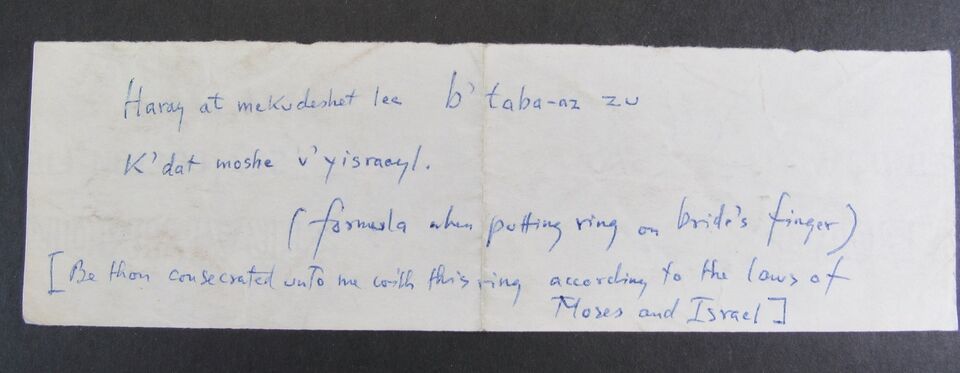 Haray at mekudeshet lee b' taba-az zu
K'dat moshe v'yisraeyl.
(formula when putting ring on bride's finger)
[Be thou consecrated unto me with this ring according to the laws of
Moses and Israel]